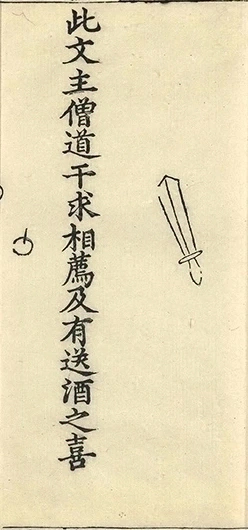 此文主僧道干求相薦及有送酒之喜